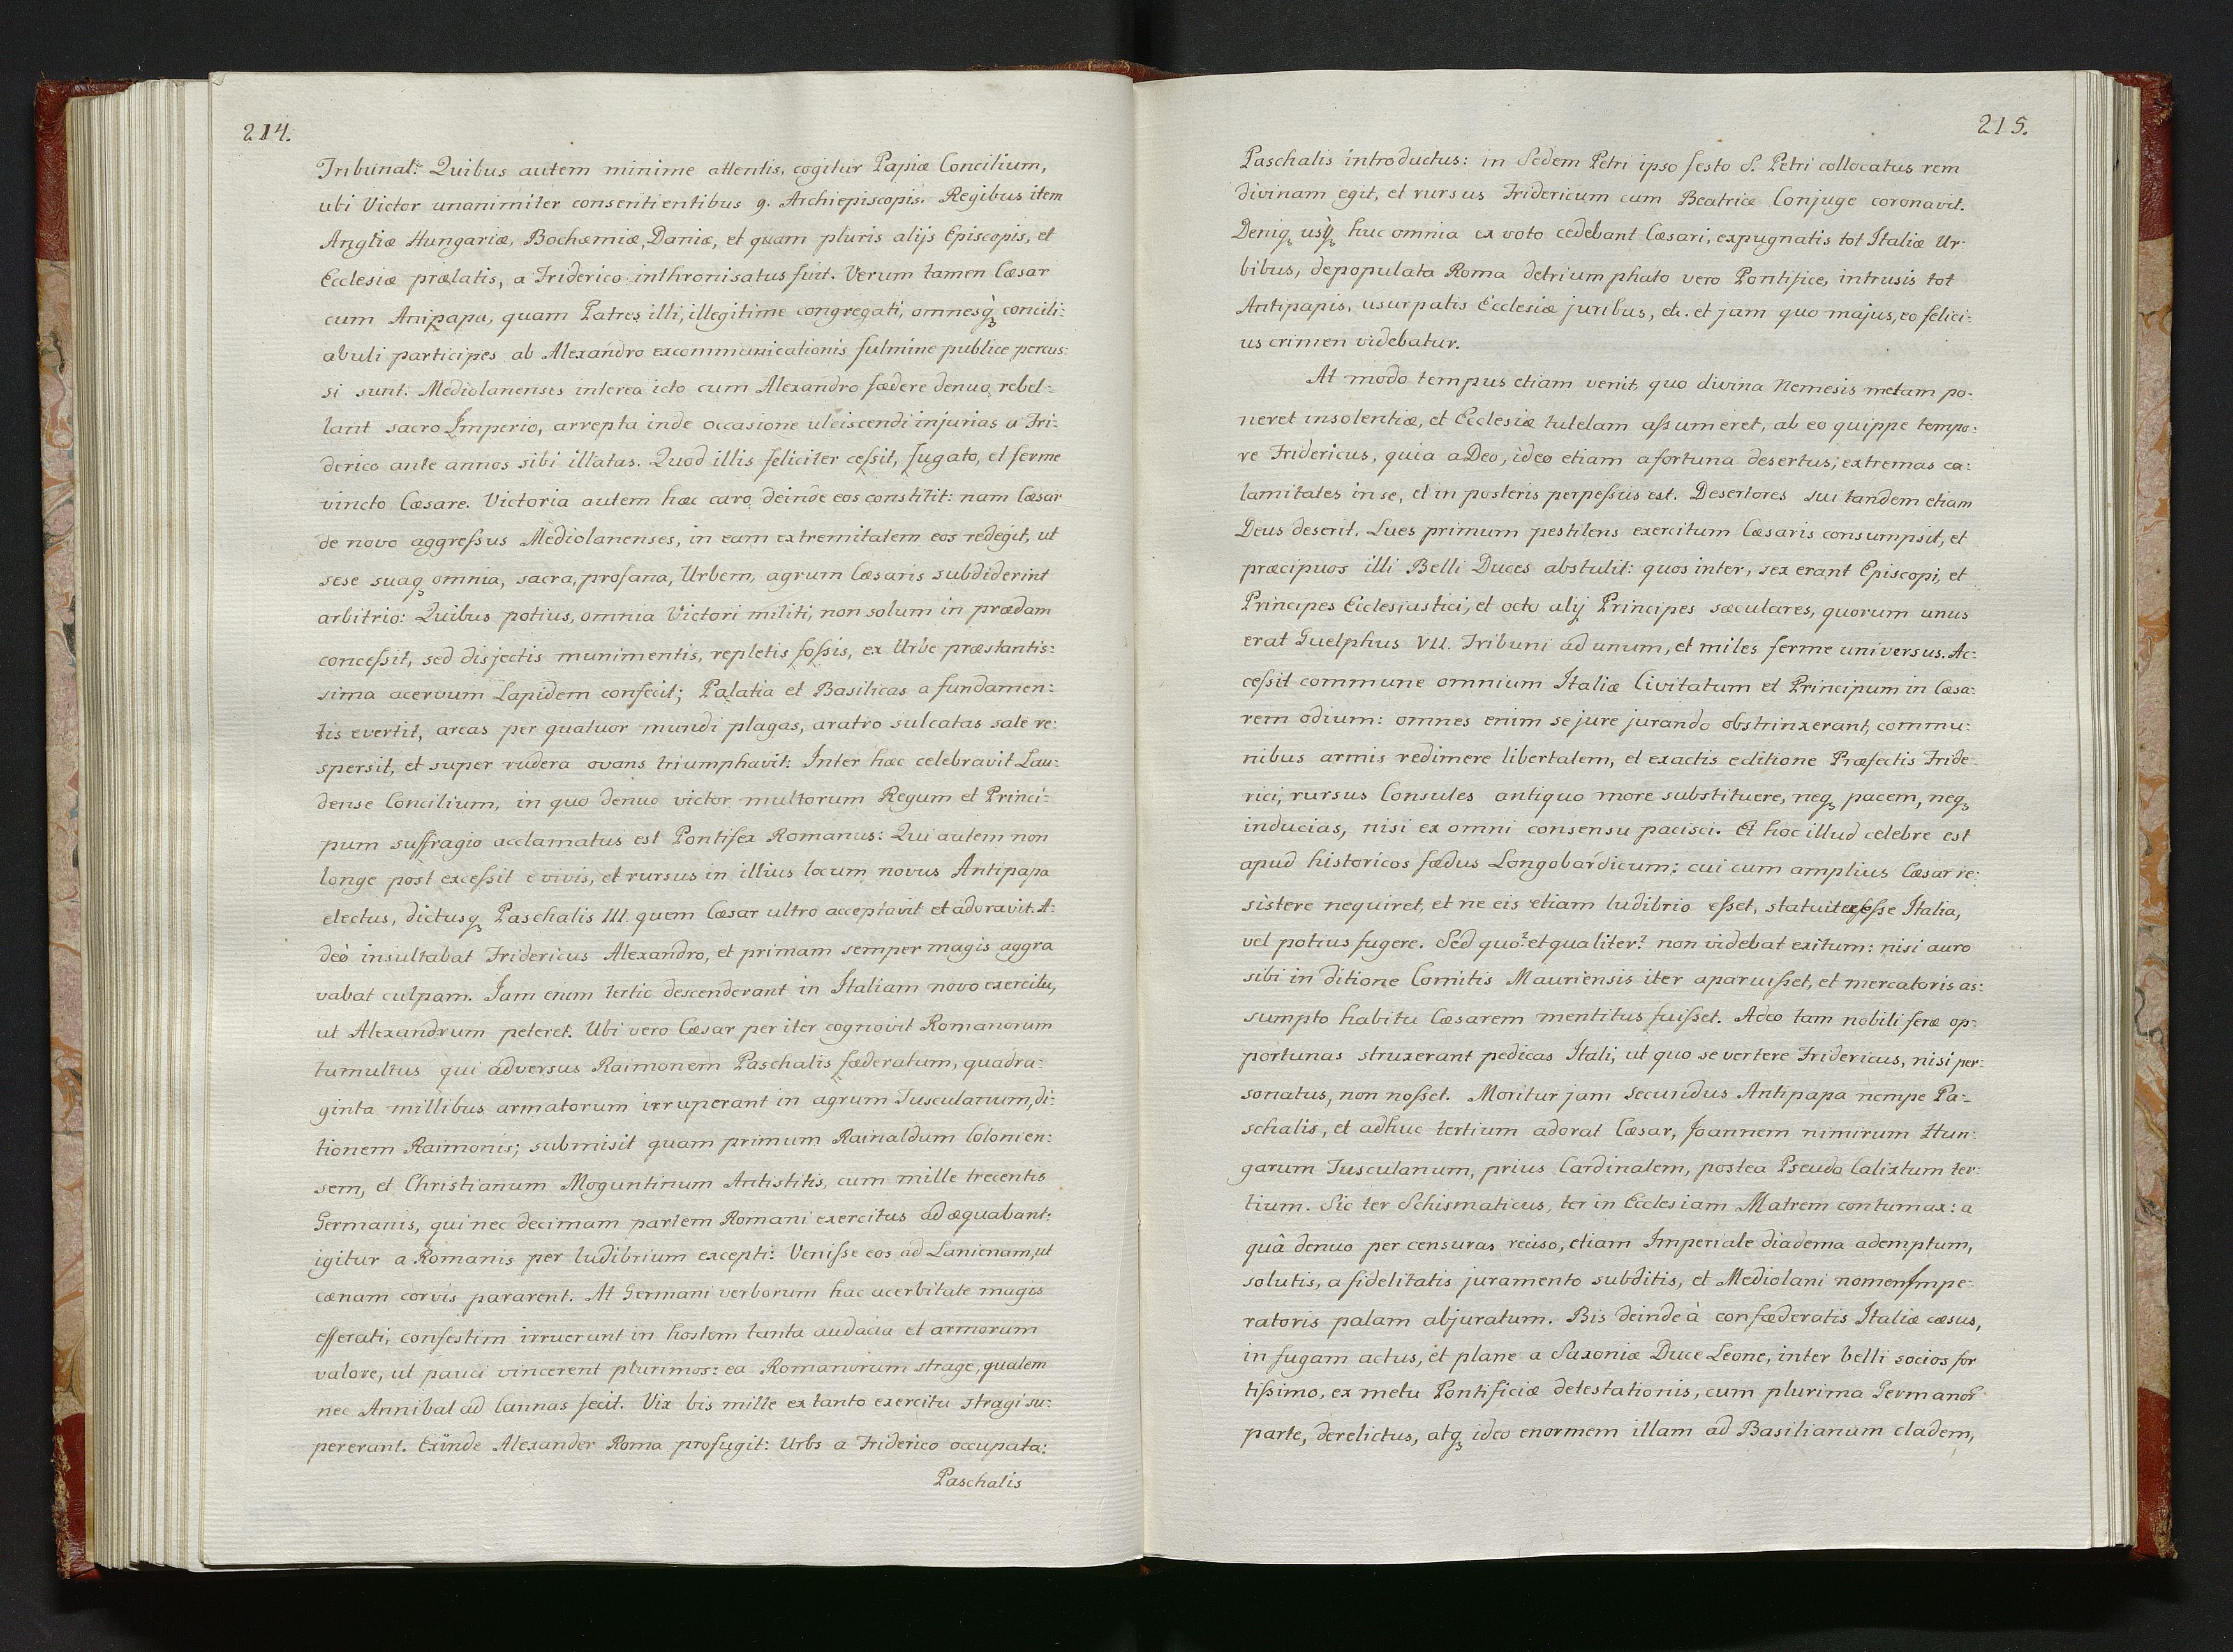 214.
Tribunal: Quibus autem minime attentis, cogitur Papiæ Concilium,
ubi Victor unanimiter consentientibus 9. Archiepiscopis. Regibus item
Angliæ Hungariæ, Bochæmiæ, Daniæ, et quam pluris alijs Episcopis, et
Ecclesiæ prælatis, a Friderico inthronisatus fuit. Verum tamen Cæsar
cum Anipapa, quam Patres illi, illegitime congregati, omnesq̀ʒ concili:
abuli participes ab Alexandro excommunicationis fulmine publice percus:
si sunt. Mediolanenses interea icto cum Alexandro fædere denuo rebel=
lant sacro Imperio, arrepta inde occasione ulciscendi injurias a Fri:
derico ante annos sibi illatas. Quod illis feliciter ceſsit, fugato, et ferme
vincto Cæsare. Victoria autem hæc caro deinde eos constitit: nam Cæsar
de novo aggreſsus Mediolanenses, in eam extremitatem eos redegit, ut
sese suaqʒ omnia, sacra, profana, Urbem, agrum Cæsaris subdiderint
arbitrio: Quibus potitus, omnia Victori militi, non solum in prædam
conceſsit, sed disjectis munimentis, repletis foſsis, ex Urbe præstantis:
sima acervum Lapidem confecit; Palatia et Basilicas a fundamen:
tis evertit, areas per quatuor mundi plagas, aratro sulcatas sale re:
spersit, et super rudera ovans triumphavit: Inter hæc celebravit Lau:
dense Concilium, in quo denuo victor multorum Regum et Princi=
pum suffragio acclamatus est Pontifex Romanus: Qui autem non
longe post exceſsit e vivis, et rursus in illius locum novus Antipapa
electus, dictusqʒ Paschalis III. quem Cæsar ultro acceptavit et adoravit. A:
deò insultabat Fridericus Alexandro, et primam semper magis aggra
vabat culpam. Jam enim tertio descenderant in Italiam novo exercitu,
ut Alexandrum peteret. Ubi vero Cæsar per iter cognovit Romanorum
tumultus qui adversus Raimonem Paschalis fæderatum, quadra:
ginta millibus armatorum irruperant in agrum Tusculanum, di:
tionem Raimonis; submisit quam primum Rainaldum Colonien:
sem, et Christianum Moguntinum Antistitis, cum mille trecentis
Germanis, qui nec decimam partem Romani exercitus adæquabant:
igitur a Romanis per ludibrium excepti: Veniſse eos ad Lanienam, ut
cænam corvis pararent. At Germani verborum hac acerbitate magis
efferati, confestim irruerunt in hostem tanta audacia et armorum
valore, ut pauci vincerent plurimos: ea Romanorum strage, qualem
nec Annibal ad Cannas fecit. Vix bis mille ex tanto exercitu stragi su:
pererant. Exinde Alexander Roma profugit: Urbs a Friderico occupata:
Paschalis
215.
Paschalis introductus: in Sedem Petri ipso festo S. Petri collocatus rem
divinam egit, et rursus Fridericum cum Beatrice Conjuge coronavit.
Deniqʒ usq̀ʒ huc omnia ex voto cedebant Cæsari, expugnatis tot Italiæ Ur:
bibus, depopulata Roma detriumphato vero Pontifice, intrusis tot
Antipapis, usurpatis Ecclesiæ juribus, etc. et jam quo majus, eo felici:
us crimen videbatur.
At modo tempus etiam venit, quo divina Nemesis metam po-
neret insolentiæ, et Ecclesiæ tutelam aſsumeret, ab eo quippe tempo:
re Fridericus, quia a Deo, ideo etiam a fortuna desertus, extremas ca:
lamitates in se, et in posteris perpeſsus est. Desertores sui tandem etiam
Deus deserit. Lues primum pestilens exercitum Cæsaris consumpsit, et
præcipuos illi Belli Duces abstulit: quos inter, sex erant Episcopi, et
Principes Ecclesiastici, et octo alij Principes sæculares, quorum unus
erat Guelphus VII. Tribuni ad unum, et miles ferme universus. Ac:
ceſsit commune omnium Italiæ Civitatum et Principum in Cæsa:
rem odium: omnes enim se jure jurando obstrinxerant, commu:
nibus armis redimere libertatem, et exactis editione Præfectis Fride:
rici, rursus Consules antiquo more substituere, neqʒ pacem, neqʒ
inducias, nisi ex omni consensu pacisci. Et hoc illud celebre est
apud historicos fædus Longobardicum: cui cum amplius Cæsar re:
sistere nequiret, et ne eis etiam ludibrio eſset, statuit Italia,
vel potius fugere. Sed quo? et qualiter? non videbat exitum: nisi auro
sibi in ditione Comitis Mauriensis iter aparuiſset, et mercatoris as:
sumpto habitu Cæsarem mentitus fuiſset. Adeo tam nobili feræ op:
portunas struxerant pedicas Itali, ut quo se vertere Fridericus, nisi per:
sonatus, non noſset. Moritur jam secundus Antipapa nempe Pa:
schalis, et adhuc tertium adorat Cæsar, Joannem nimirum Hun:
garum Tusculanum, prius Cardinalem, postea Pseudo Calixtum ter:
tium. Sic ter Schismaticus, ter in Ecclesiam Matrem contumax: a
quâ denuo per censuras reciso, etiam Imperiale diadema ademptum,
solutis, a fidelitatis juramento subditis, et Mediolani nomen Impe:
ratoris palam abjuratum. Bis deinde à confæderatis Italiæ cæsus,
in fugam actus, et plane a Saxoniæ Duce Leone, inter belli socios for
tiſsimo, ex metu Pontificiæ detestationis, cum plurima Germanor
parte, derelictus, atqʒ ideo enormem illam ad Basilianum cladem,